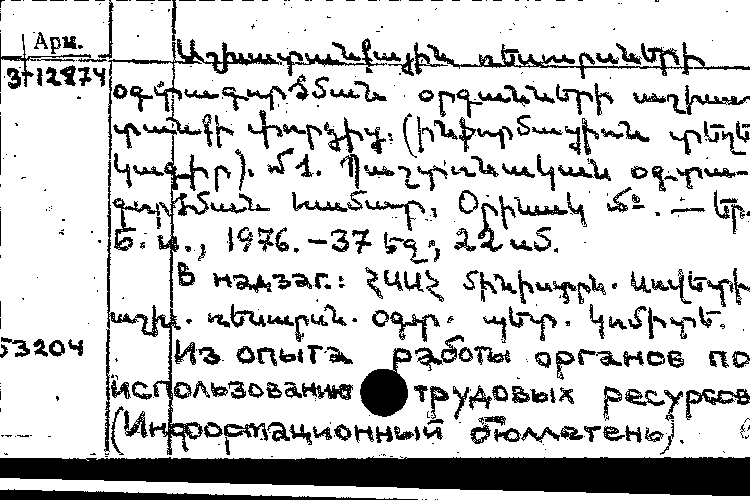 Арм.
3-12874
Աշխատանքային ռեսուրսների
օգտագործման օրգանների աշխա-
տանքի փորձից. (Ինֆորմացիոն տեղե-
կագիր). № 1. Պաշտոնական օգտա-
գործման համար. Օրինակ №. — Եր.
Б. и., 1976. – 37 եզ; 22 սմ.
В надзаг.: ՀՍՍՀ մինիստրն. սովետի
աշխ. ռեսուրսն. օգտ. պետ. կոմիտե.
53204 Из опыта работы органов по
использованию трудовых ресурсов
(Информационный бюллетень).